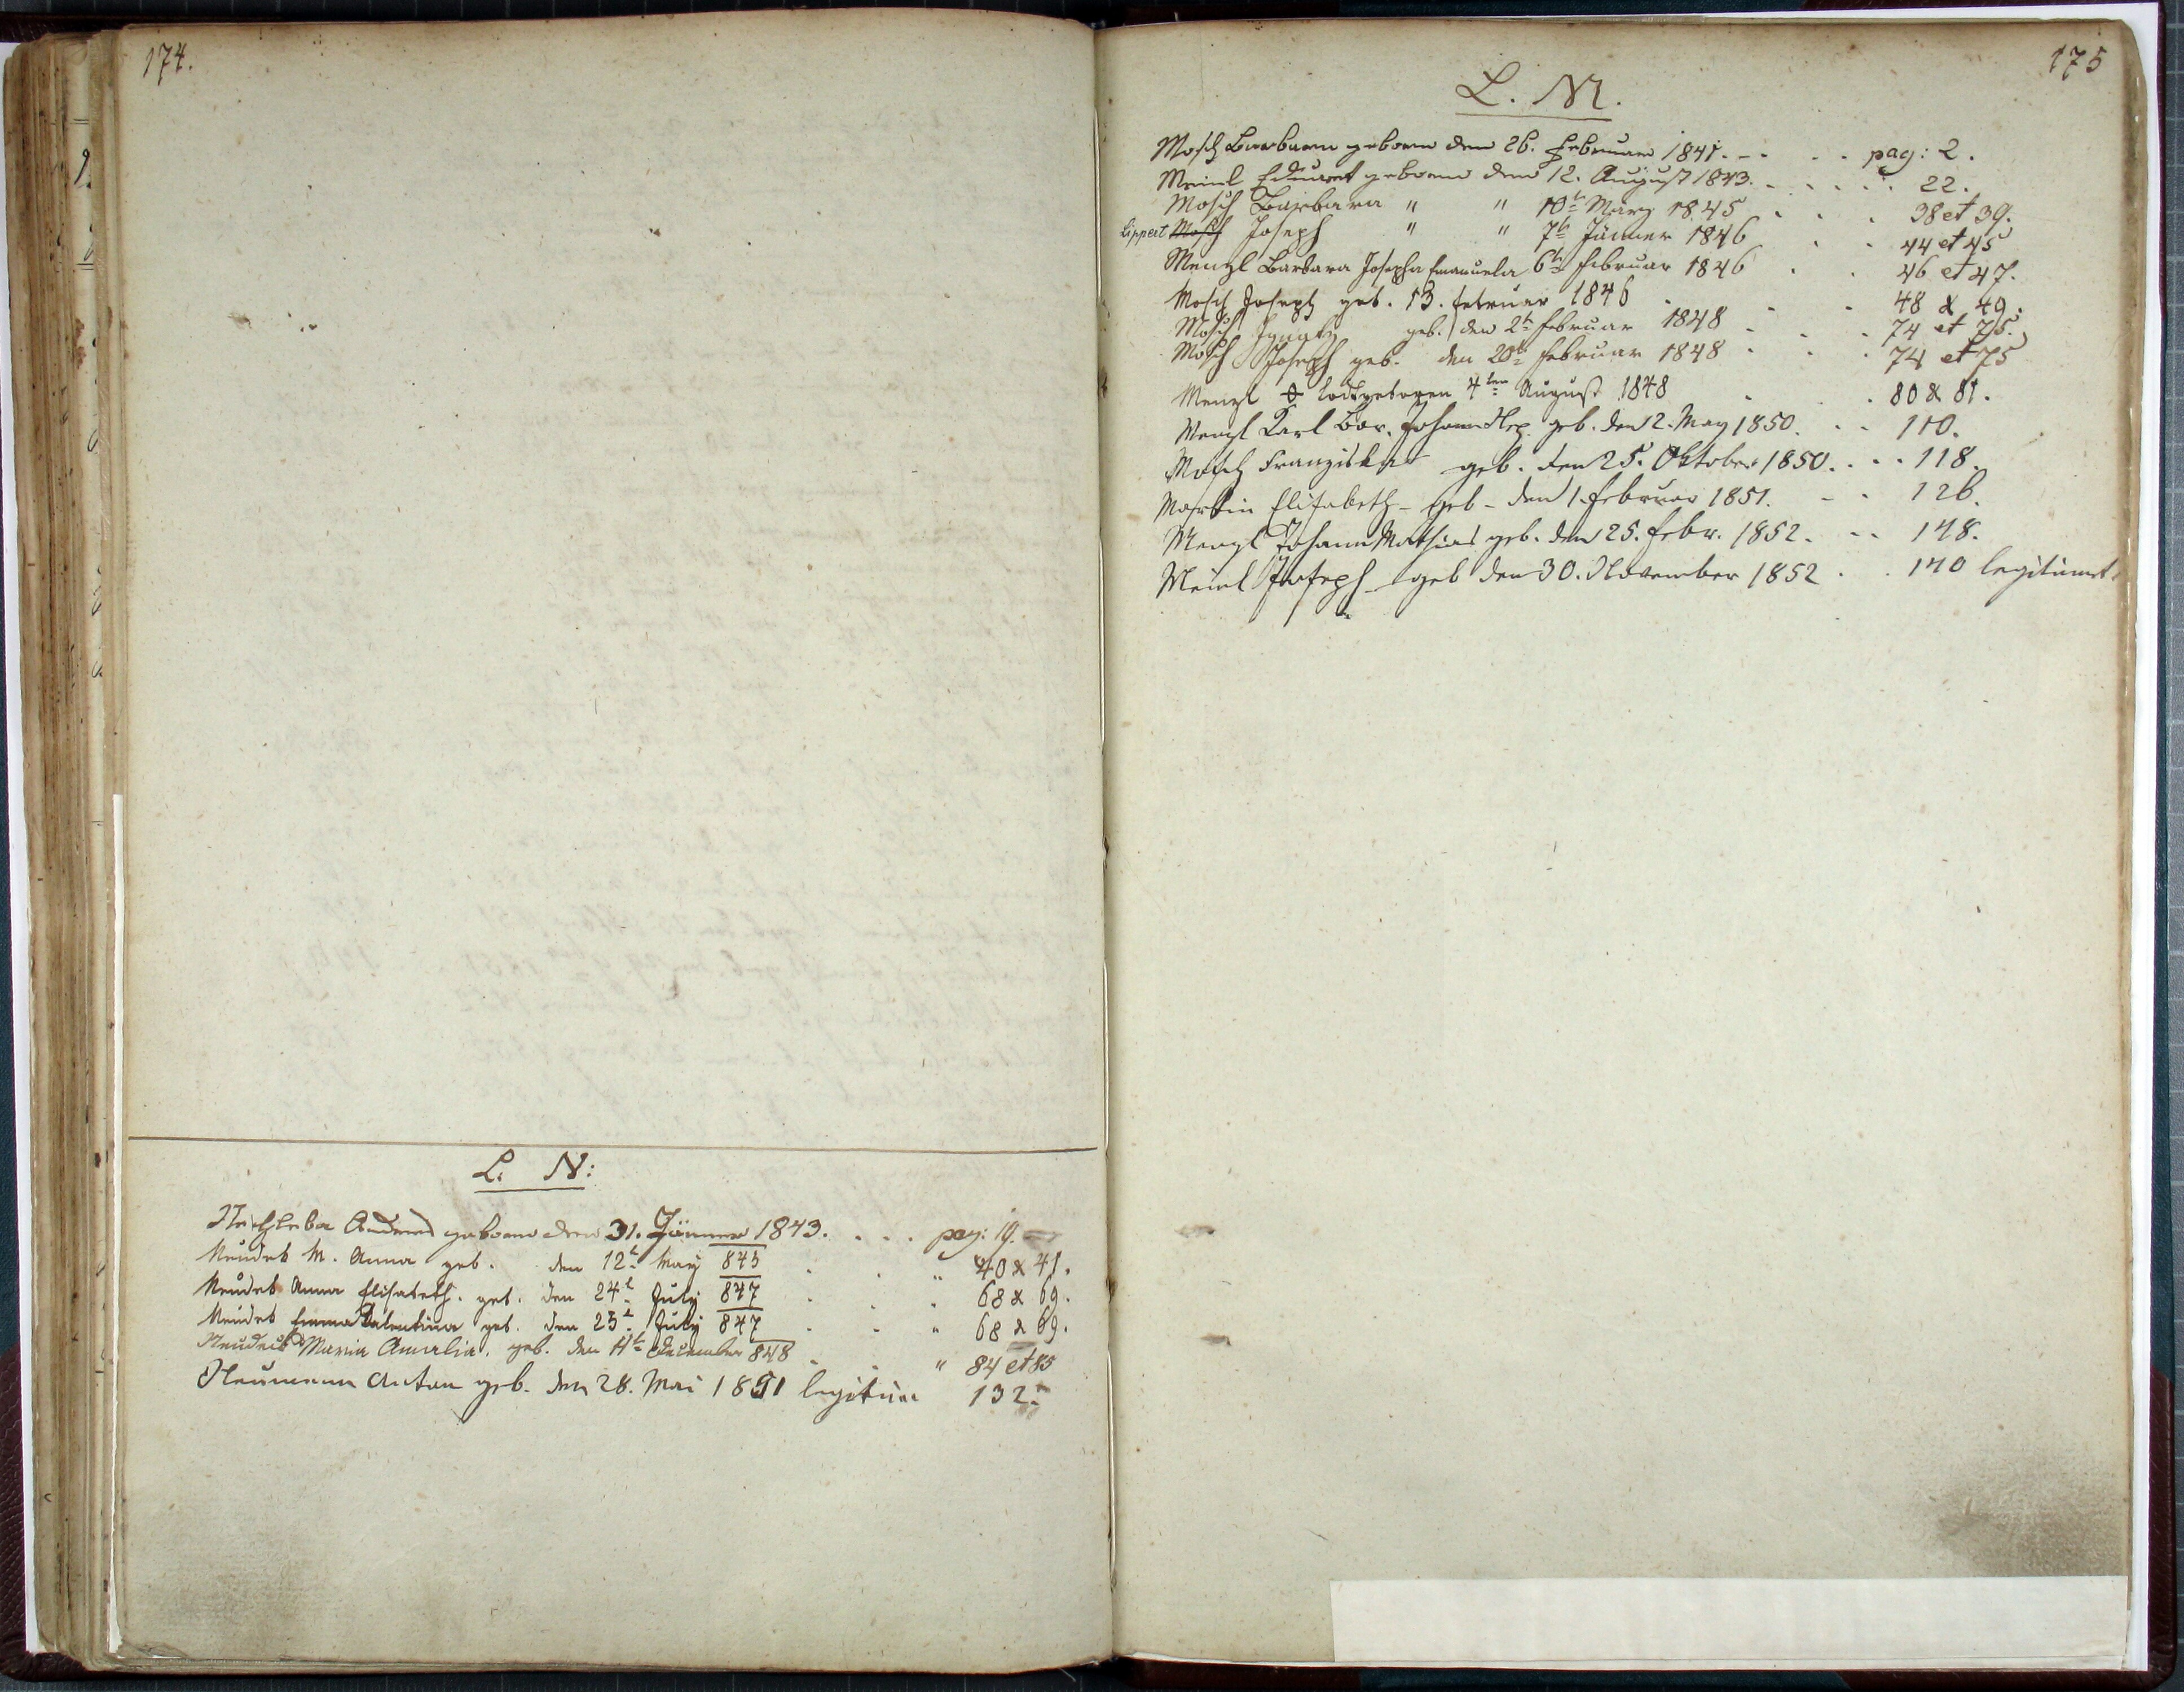 174.
L. N:
Andreas geboren den 31. Jänner 1843. . . . pag: 19.
Neudek M. Anna geb. den 12t May 845 . . " 40 & 41.
Neudek Anna Elisabeth. geb. den 24t July 847 . . " 68 & 69.
Neudek Emma Valentina geb. den 25t July 847 . . " 68 & 69.
Neudek Maria Amalia. geb. den 11t December 848 . . " 84 et 85
Neumann Anton geb. den 28. Mai 1851 legitim 132.
175
L. M.
Mosch Barbara geboren den 26. Februar 1841. - . . . pag: 2.
Meinl Eduard geboren den 12. August 1843. . . . . . 22.
Mosch Barbara " " 10t März 1845 . . . 38 et 39.
Lippert Mosch Joseph " " 7t Jänner 1846 . . 44 et 45
Menzl Barbara Josepha Emanuela 6t Februar 1846 . . 46 et 47.
Mosch Joseph geb. 13. Februar 1846 . . . 48 & 49.
Mosch Ignatz geb. den 2t Februar 1848 . . . 74 et 75.
Mosch Joseph geb. den 20t Februar 1848 . . . 74 et 75
Menzl todtgeboren 4ten August 1848 . . . 80 & 81.
Menzl Karl Bor. Johann Nep. geb. den 12. May 1850. . . 110.
Mosch Franziska geb. den 25. Oktober 1850. . . . 118.
Elisabeth - geb - den 1. Februar 1851. - . 126.
Menzl Johann Mathias geb. den 25. Febr. 1852. . . 148.
Meinl Joseph geb den 30. November 1852 . . 140 legitimirt